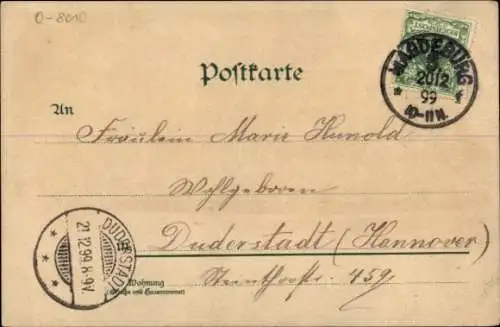 0-8010
MAGDEBURG
20/12
99
10-11 N.
Postkarte
An
Fräulein Marie Hunold
Wohlgeboren
in Duderstadt (Hannover)
459.
Wohnung
(Straße und Hausnummer)
DUDERSTADT
21.12.99.8-9V.